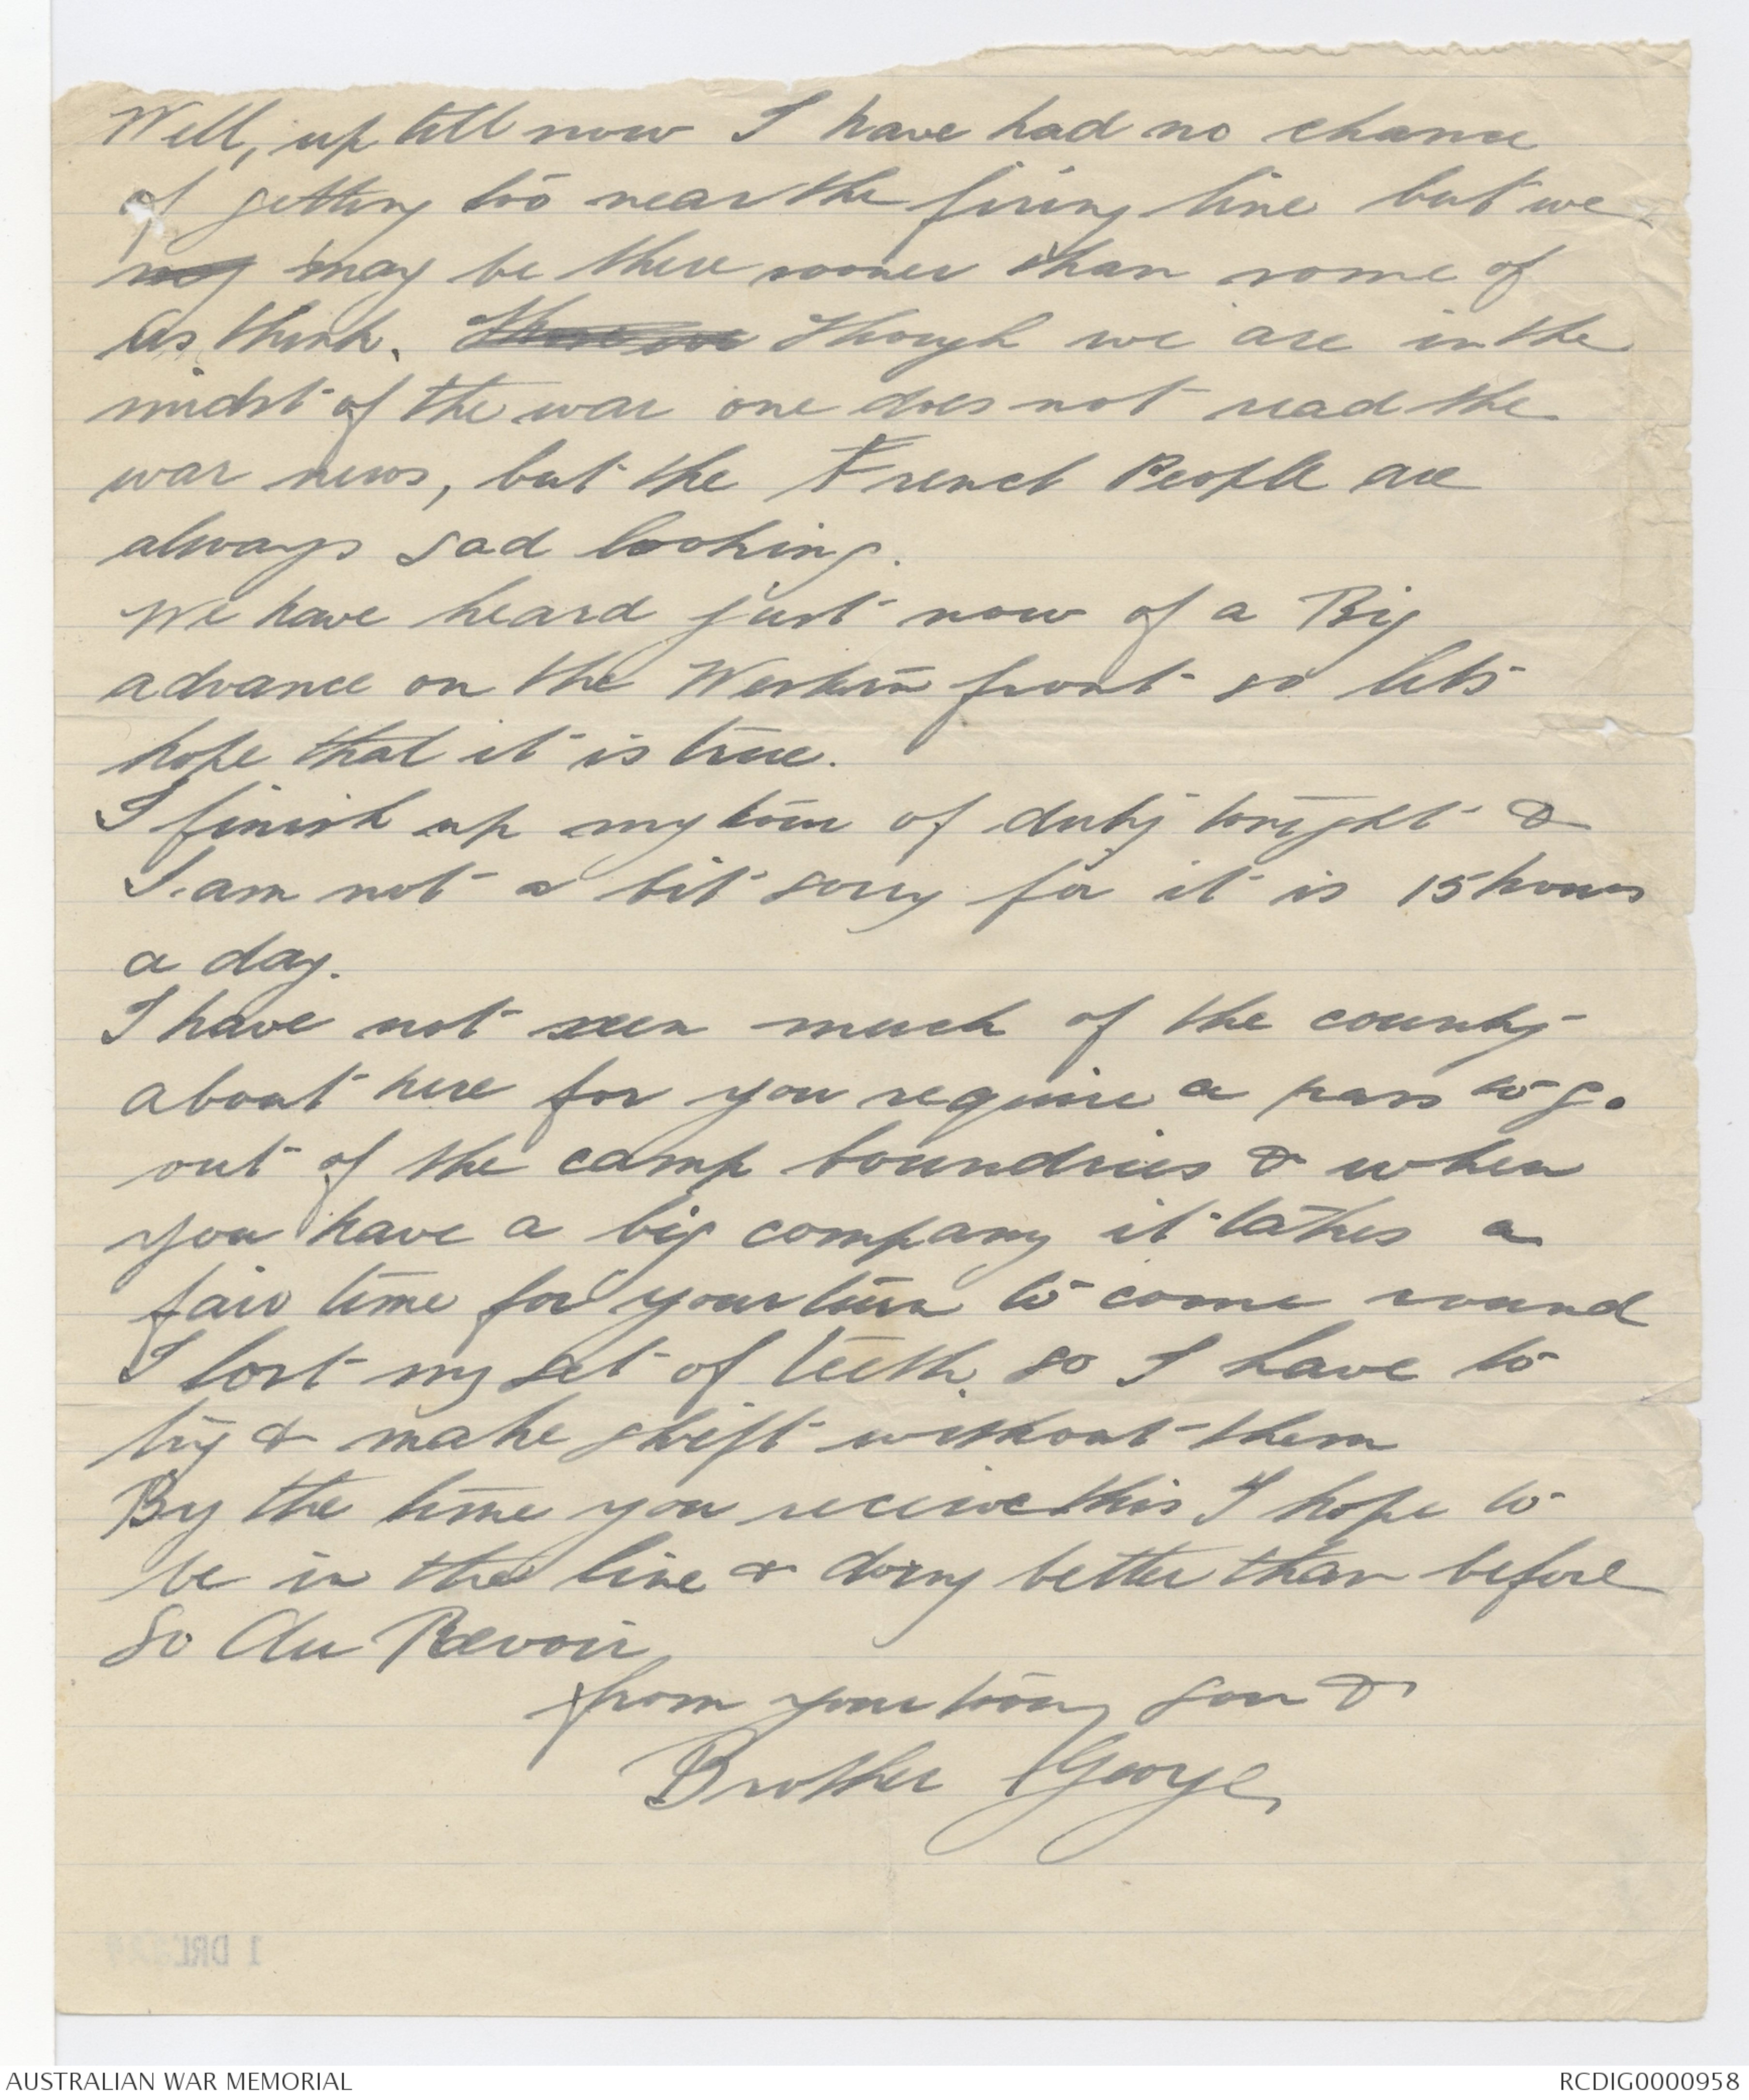 Well, up till now I have had no chance
of getting too near the firing line but we
may may be there sooner than some of
us think. Though we are in the
midst of the war one does not read the
war news, but the French People are
always sad looking.
We have heard just now of a Big
advance on the Western front so lets
hope that it is true.
I finish up my tour of duty tonight &
I am not a bit sorry for it is 15 hours
a day.
I have not seen much of the county
about here for you require a pass to go
out of the camp boundries & when
you have a big company it takes a
fair time for your turn to come round
I lost my set of teeth, so I have to
try & make shift without them
By the time you recieve this I hope to
be in the line & doing better than before
So Au Revoir
from your loving son &
Brother George
1 DRL
AUSTRALIAN WAR MEMORIAL
RCDIG0000958